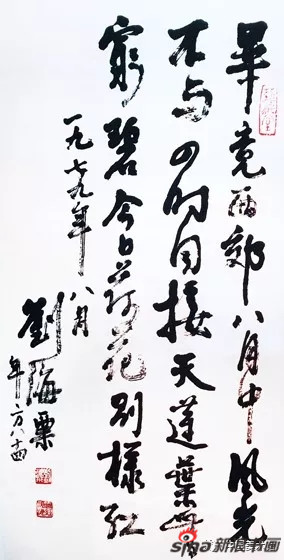 畢竟西郊八月中風光
不与四时同接天蓮葉無
窮碧今日荷花別樣紅
一九七九年八月
劉海粟
年方八十四
sina新浪书画